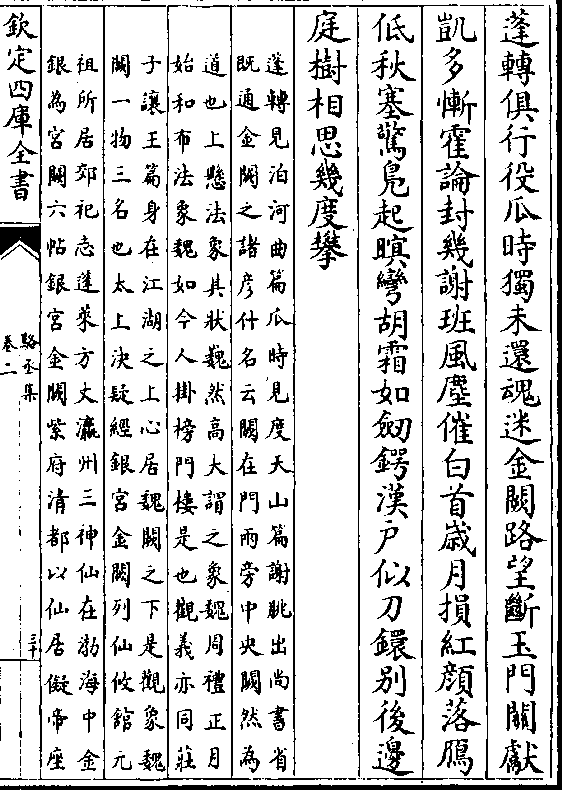 蓬轉俱行役瓜時獨未還魂迷金闕路望斷玉門關獻
凱多慚霍論封幾謝班風塵催白首歲月損紅顔落鴈
低秋塞驚鳧起暝彎胡霜如劒鍔漢戶似刀鐶别後邊
庭樹相思幾度攀
蓬轉見泊河曲篇瓜時見度天山篇謝朓出尚書省
既通金閨之諸彦什名云闕在門兩旁中央闕然為
道也上懸法象其狀巍然高大謂之象魏周禮正月
始和布法象魏如今人掛榜門樓是也觀義亦同莊
子讓王篇身在江湖之上心居魏闕之下是觀象魏
闕一物三名也太上決疑經銀宮金闕列仙攸館元
祖所居郊祀志蓬萊方丈瀛州三神仙在渤海中金
銀為宮闕六帖銀宮金闕紫府清都以仙居儗帝座
欽定四庫全書
駱丞集
卷二
三十